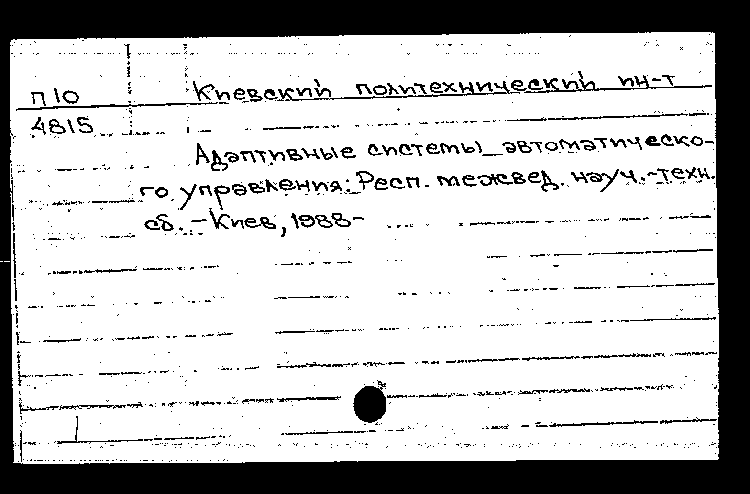 П10 Киевский политехнический ин-т
4815
Адаптивные системы автоматическо-
го управления: Респ. межвед. науч.-техн.
сб. - Киев, 1988-